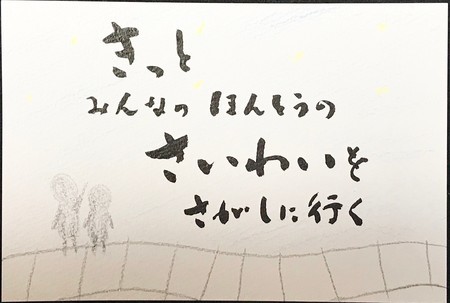 きっと
みんなの ほんとうの
さいわいを
さがしに行く